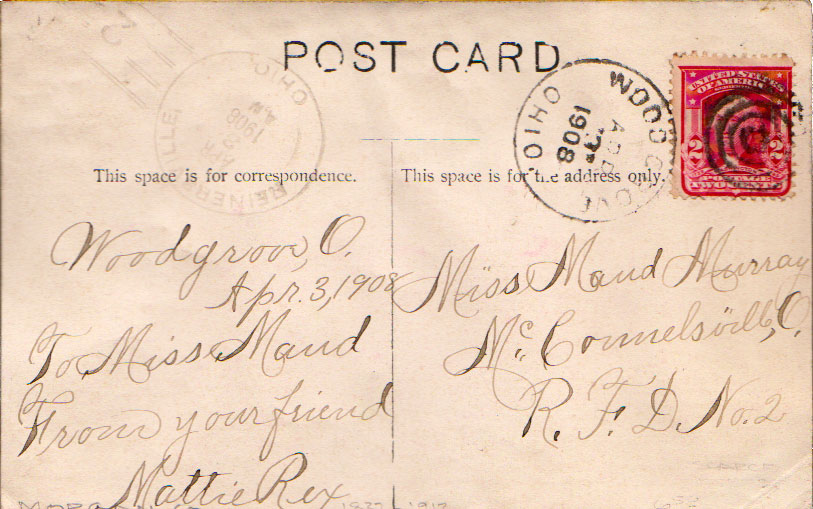 POST CARD
OHIO
1908
REINERSVILLE
OHIO
1908
WOODGROVE
UNITED STATES
OF AMERICA
2 2
POSTAGE
This space is for correspondence.
This space is for the address only.
Woodgrove, O.
Apr. 3, 1908
To Miss Maud
From your friend
Mattie Rex
Miss Maud Murray
Mc Connelsville, O.
R. F. D. No. 2
1912